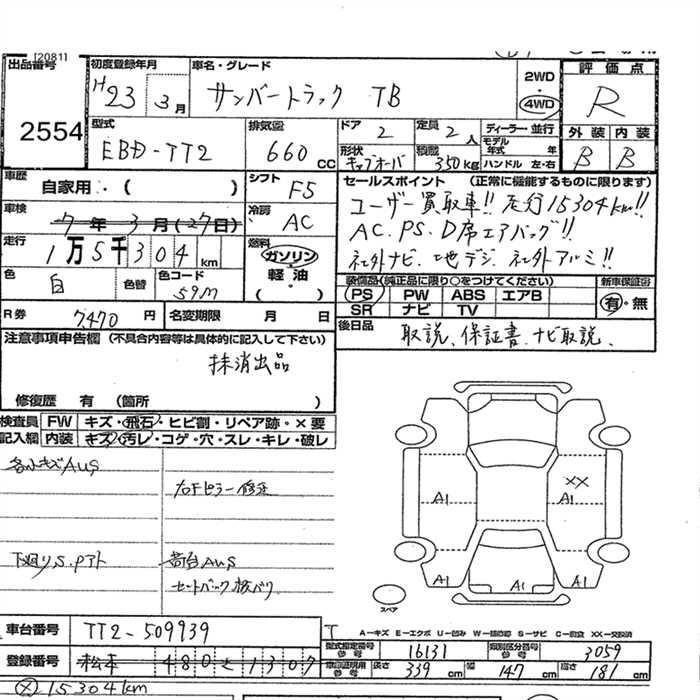 [20811
出品番号 初度登録年月 車名・グレード 2WD・4WD 評価点
2554 H23 3月 サンバートラック TB R
型式 排気量 ドア 定員 ディーラー・並行 外装 内装
EBD-TT2 660CC 2 2人 モデル年式 年式 B B
形状 積載 ハンドル 左・右
キャブオーバ 350kg
車歴 シフト セールスポイント (正常に機能するものに限ります)
自家用・( ) F5 ユーザー買取車!! 走行15304km!!
車検 冷房 AC.PS.D席エアバッグ!!
7年3月(27日) AC 社外ナビ.地デジ.社外アルミ!!
走行 燃料
1万5千304km ガソリン・軽油・( )
色 色替 色コード
白 59M
装備品(純正品に限り○をつけてください) 新車保証書
PS PW ABS エアB 有・無
SR ナビ TV
R券 7,470円 名変期限 月 日
後日品 取説、保証書.ナビ取説、
注意事項申告欄 (不具合内容等は具体的に記入して下さい)
抹消出品
修復歴 有 (箇所 )
検査員 FW キズ・飛石・ヒビ割・リペア跡・×要
記入欄 内装 キズ・汚レ・コゲ・穴・スレ・キレ・破レ
各小キズAUS
右Fピラー修正
下廻りS.Pアト 荷台AUS
セートバック板バク
A1 XX A1
A1 A1 A1
スペア
T A-キズ E-エクボ U-凹み W-補修跡 S-サビ C-腐食 XX-交換済
車台番号 TT2-509939
型式指定番号 16131 類別区分番号 3059
登録番号 松本 480 と 1307
車庫証明用参考 長さ 339cm 幅 147cm 高さ 181cm
15304km